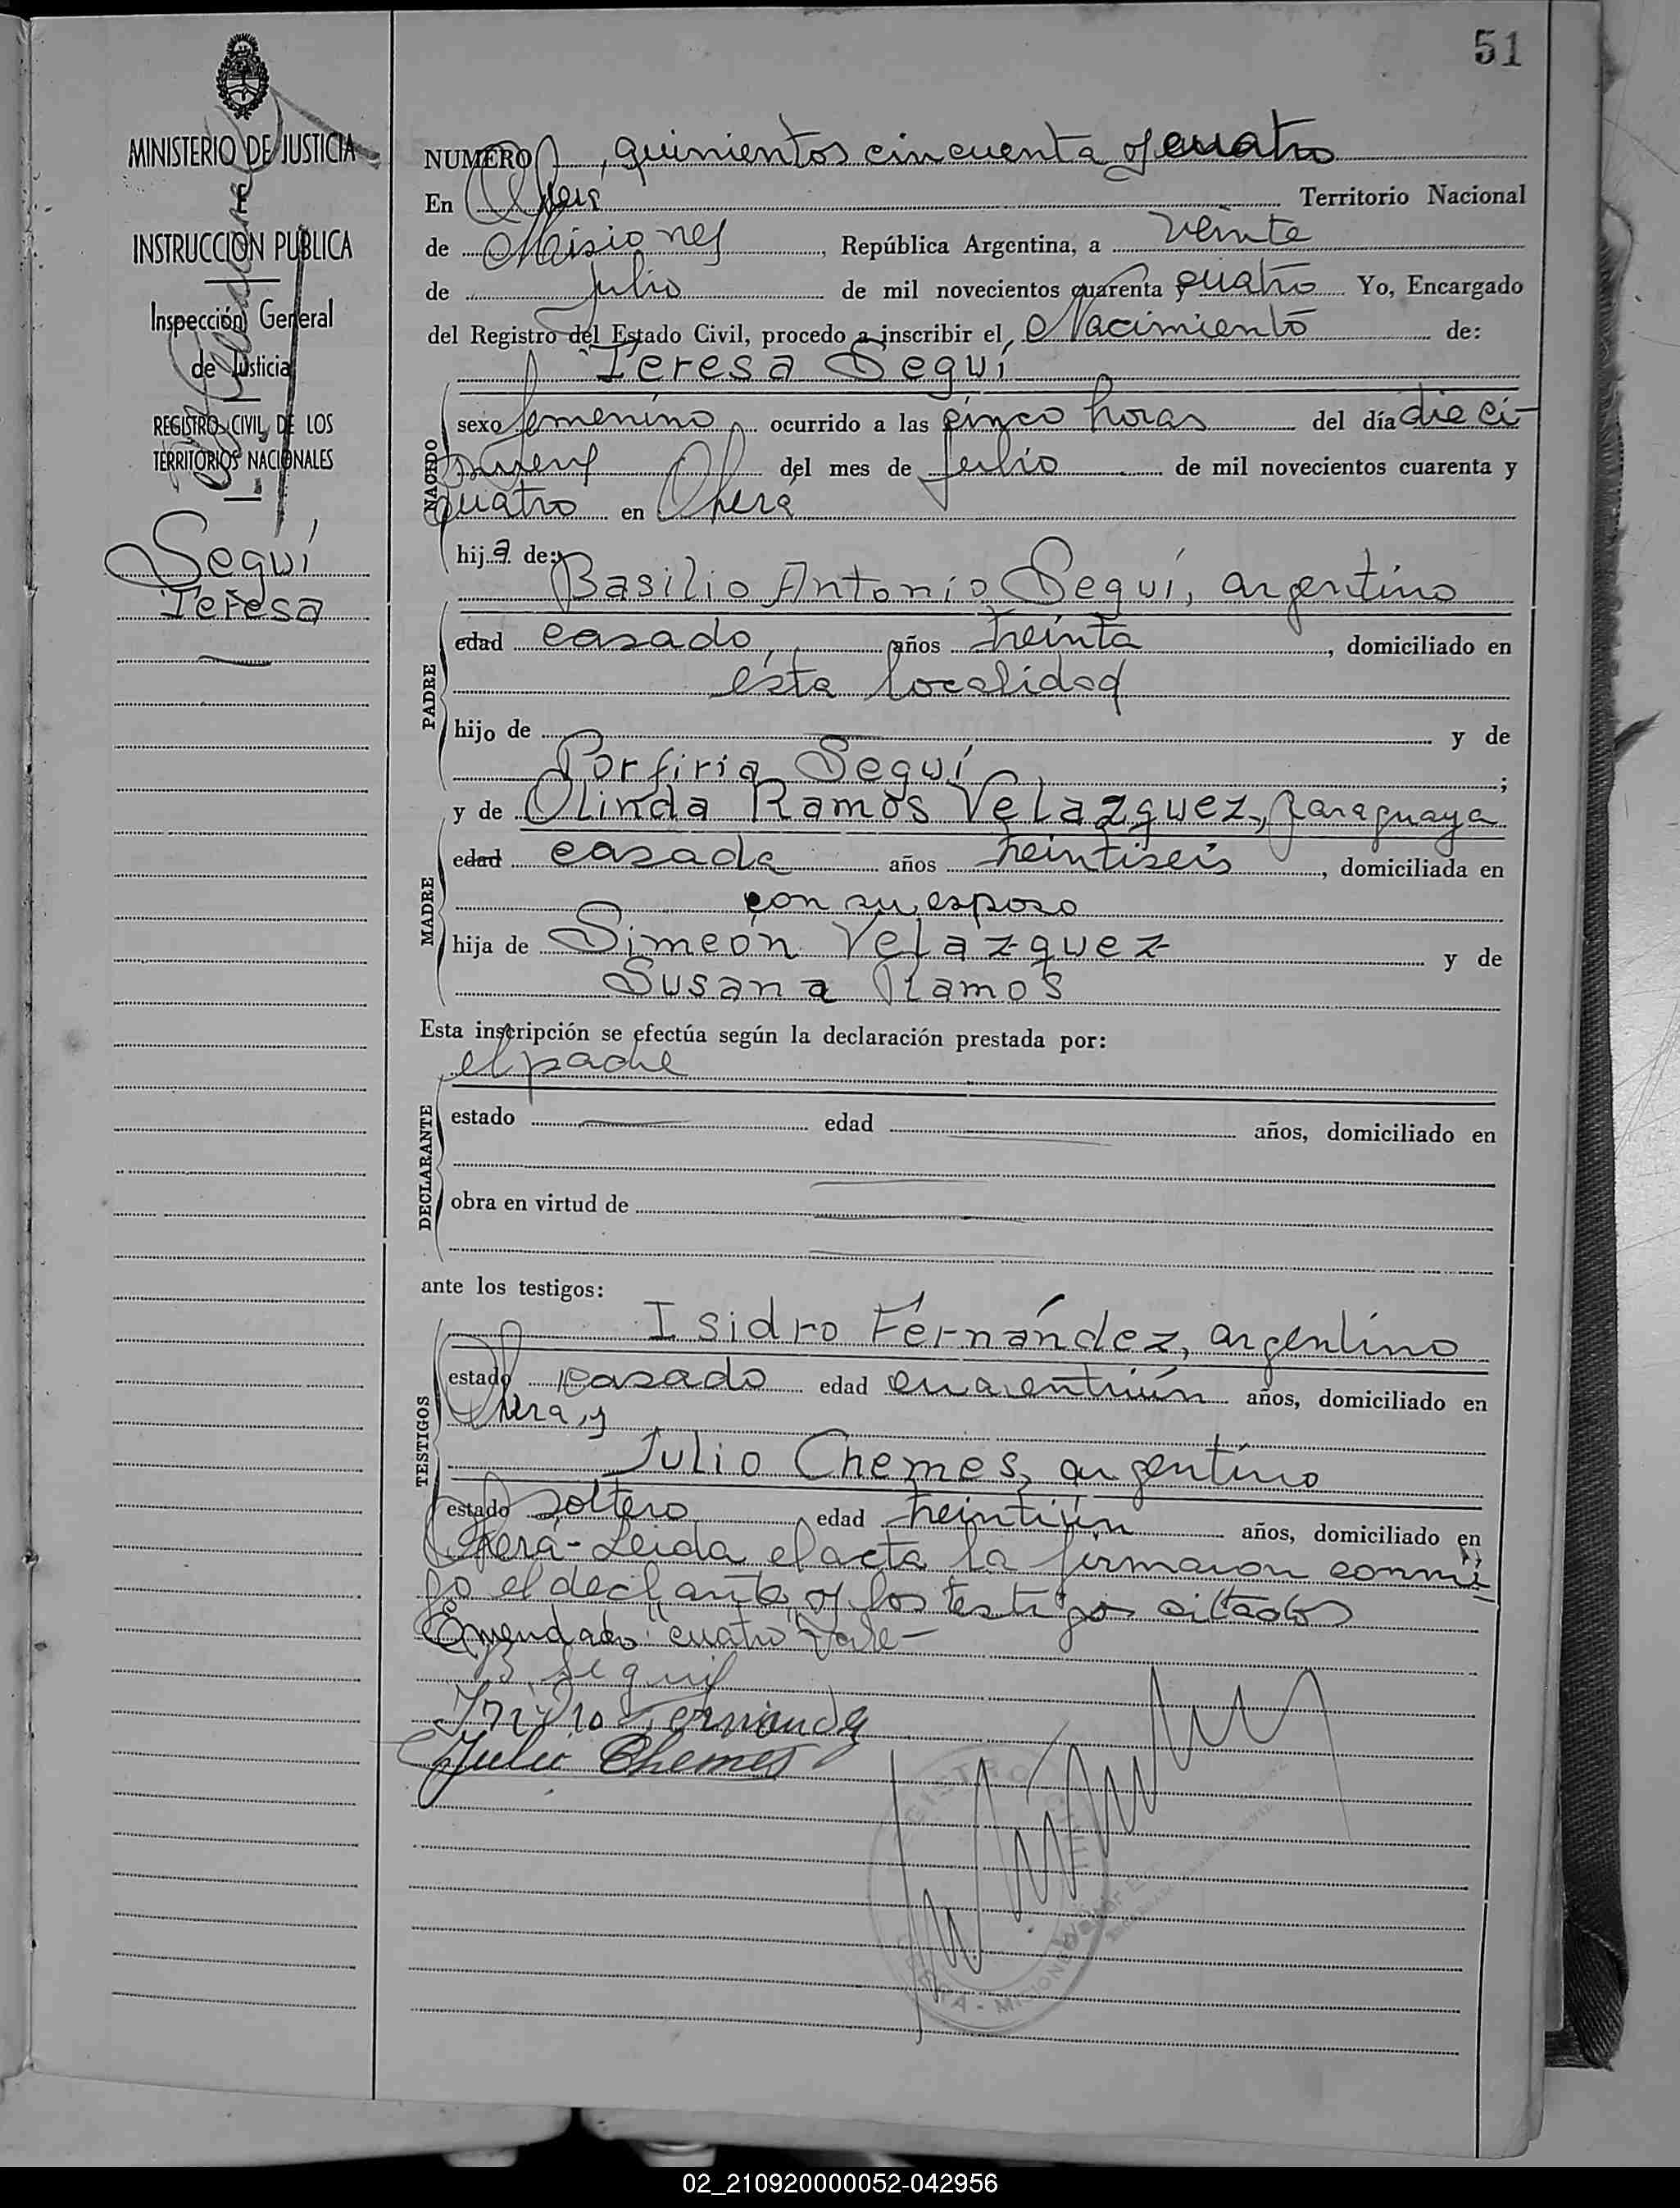 51
MINISTERIO DE JUSTICIA
INSTRUCCION PUBLICA
Inspección General
de Justicia
REGISTRO CIVIL DE LOS
TERRITORIOS NACIONALES
Seguí
Teresa
NUMERO, quinientos cincuenta y cuatro
En Oberá Territorio Nacional
de Misiones, República Argentina, a veinte
de Julio de mil novecientos cuarenta y cuatro Yo, Encargado
del Registro del Estado Civil, procedo a inscribir el Nacimiento de:
Teresa Seguí
NACIDO
sexo femenino, ocurrido a las cinco horas del día dieci-
nueve del mes de Julio de mil novecientos cuarenta y
cuatro en Oberá
hija de:
Basilio Antonio Seguí, argentino
PADRE
edad casado, años treinta, domiciliado en
esta localidad
hijo de y de
Porfiria Seguí ;
y de Olinda Ramos Velazquez, paraguaya
MADRE
edad casada años treintiseis, domiciliada en
con su esposo
hija de Simeón Velazquez y de
Susana Ramos
Esta inscripción se efectúa según la declaración prestada por:
el padre
DECLARANTE
estado edad años, domiciliado en
obra en virtud de
ante los testigos:
TESTIGOS
Isidro Fernández, argentino
estado casado edad cuarentiún años, domiciliado en
Oberá, y
Julio Chemes, argentino
estado soltero, edad treintiún años, domiciliado en
Oberá- Leida el acta la firmaron conmi-
go el declarante y los testigos citados
Enmendado "cuatro" Vale-
B Segui
Isidro Fernandez
Julio Chemes
MISIONES
02_210920000052-042956